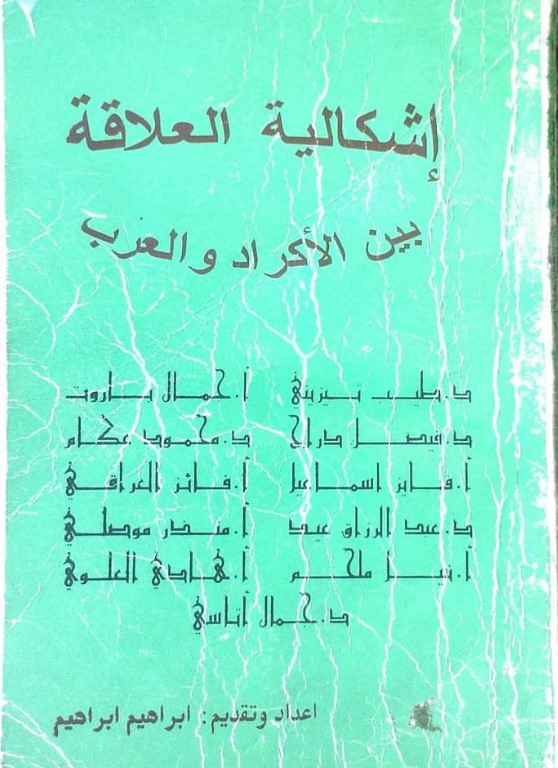 إشكالية العلاقة
بين الأكراد والعرب
د. طيب تيزيني أ. جمال باروت
د. فيصل دراج د. محمود عكام
أ. فايز اسماعيل أ. فائز العراقي
د. عبد الرزاق عيد أ. منذر موصلي
أ. نبيل ملحم أ. هادي العلوي
د. جمال أتاسي
اعداد وتقديم: ابراهيم ابراهيم